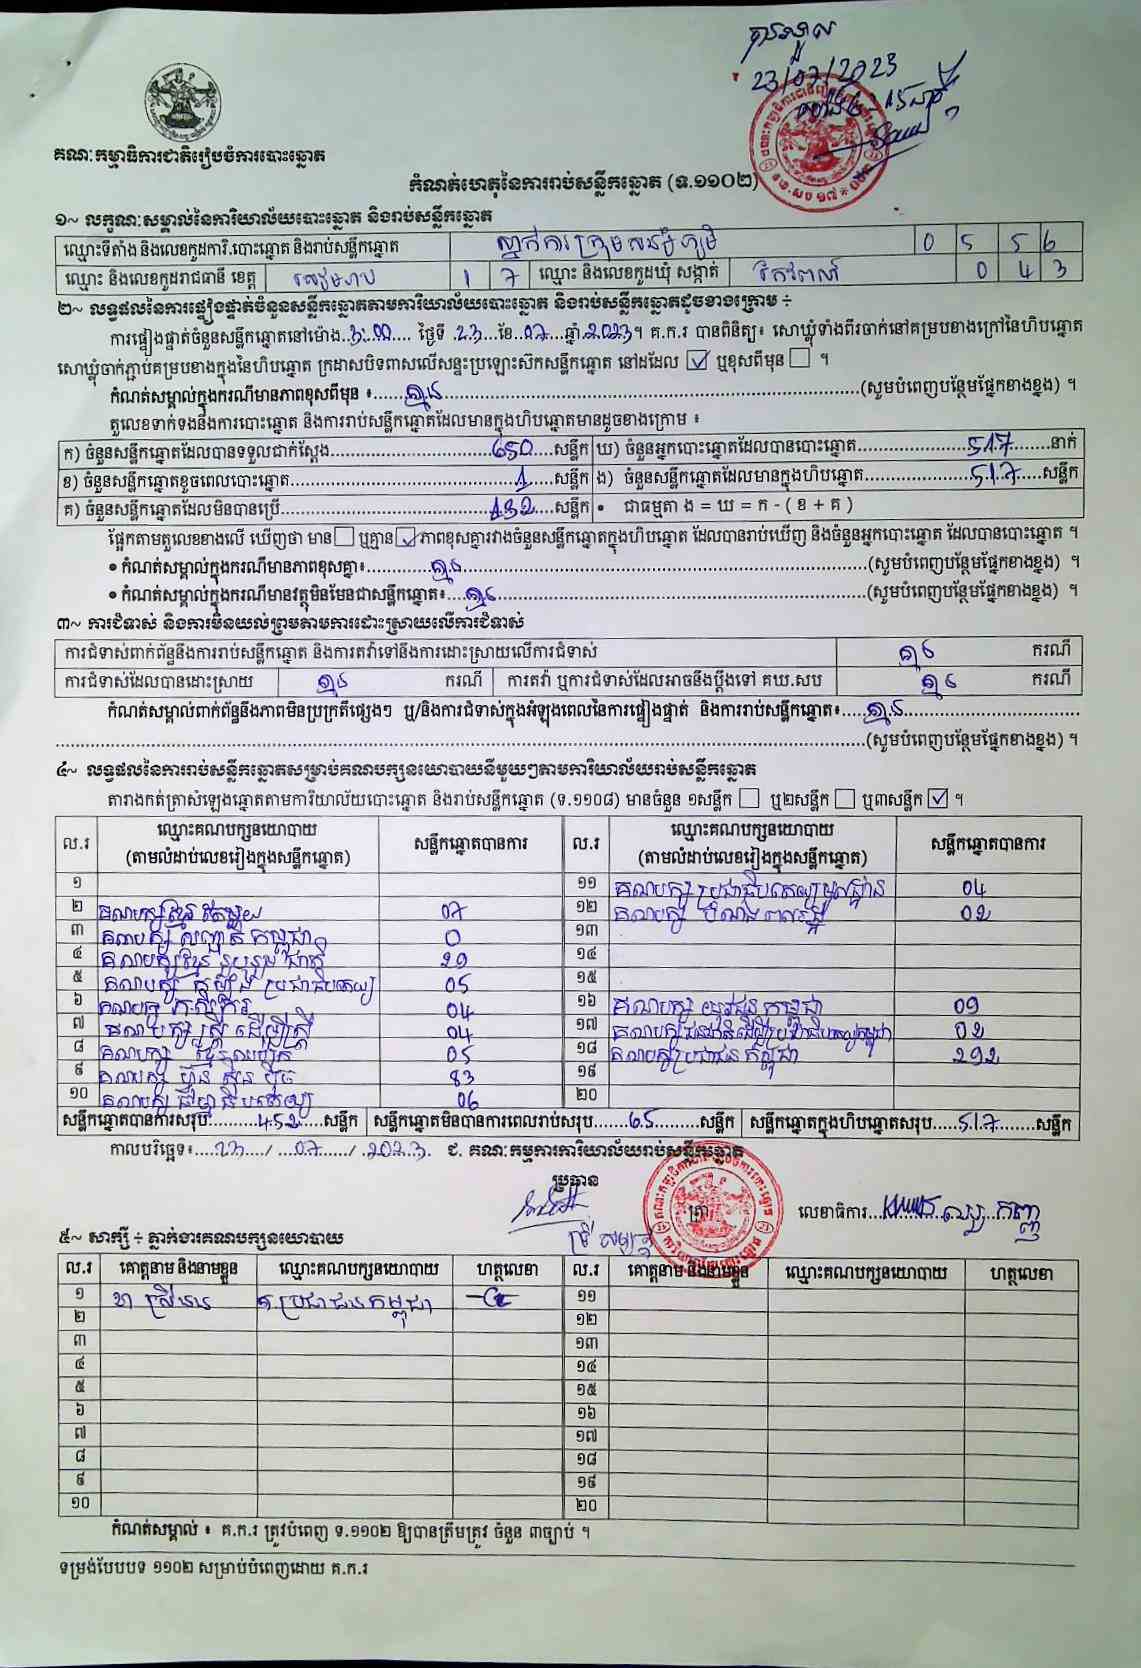 បានឃើញ
23/07/2023
គណៈកម្មាធិការជាតិរៀបចំការបោះឆ្នោត
កំណត់ហេតុនៃការរាប់សន្លឹកឆ្នោត (ទ.១១០២)
១~ លក្ខណៈសម្គាល់នៃការិយាល័យបោះឆ្នោត និងរាប់សន្លឹកឆ្នោត
ឈ្មោះទីតាំង និងលេខកូដការិ.បោះឆ្នោត និងរាប់សន្លឹកឆ្នោត 0 5 5 6
ឈ្មោះ និងលេខកូដរាជធានី ខេត្ត សៀមរាប 1 7 ឈ្មោះ និងលេខកូដឃុំ សង្កាត់ 0 4 3
២~ លទ្ធផលនៃការផ្ទៀងផ្ទាត់ចំនួនសន្លឹកឆ្នោតតាមការិយាល័យបោះឆ្នោត និងរាប់សន្លឹកឆ្នោតដូចខាងក្រោម ÷
ការផ្ទៀងផ្ទាត់ចំនួនសន្លឹកឆ្នោតនៅម៉ោង 3:00 ថ្ងៃទី 23 ខែ 07 ឆ្នាំ 2023 ។ គ.ក.រ បានពិនិត្យ៖ សោឃ្លុំទាំងពីរចាក់នៅគម្របខាងក្រៅនៃហិបឆ្នោត
សោឃ្លុំចាក់ភ្ជាប់គម្របខាងក្នុងនៃហិបឆ្នោត ក្រដាសបិទពាសលើសន្ទះប្រឡោះស៊កសន្លឹកឆ្នោត នៅដដែល ☑ ឬខុសពីមុន ☐ ។
កំណត់សម្គាល់ក្នុងករណីមានភាពខុសពីមុន ៖ គ្មាន (សូមបំពេញបន្ថែមផ្នែកខាងខ្នង) ។
តួលេខទាក់ទងនឹងការបោះឆ្នោត និងការរាប់សន្លឹកឆ្នោតដែលមានក្នុងហិបឆ្នោតមានដូចខាងក្រោម ៖
ក) ចំនួនសន្លឹកឆ្នោតដែលបានទទួលជាក់ស្តែង 650 សន្លឹក ឃ) ចំនួនអ្នកបោះឆ្នោតដែលបានបោះឆ្នោត 517 នាក់
ខ) ចំនួនសន្លឹកឆ្នោតខូចពេលបោះឆ្នោត 1 សន្លឹក ង) ចំនួនសន្លឹកឆ្នោតដែលមានក្នុងហិបឆ្នោត 517 សន្លឹក
គ) ចំនួនសន្លឹកឆ្នោតដែលមិនបានប្រើ 132 សន្លឹក • ជាធម្មតា ង = ឃ = ក - ( ខ + គ )
ផ្អែកតាមតួលេខខាងលើ ឃើញថា មាន ☐ ឬគ្មាន ☑ ភាពខុសគ្នារវាងចំនួនសន្លឹកឆ្នោតក្នុងហិបឆ្នោត ដែលបានរាប់ឃើញ និងចំនួនអ្នកបោះឆ្នោត ដែលបានបោះឆ្នោត ។
• កំណត់សម្គាល់ក្នុងករណីមានភាពខុសគ្នា៖ គ្មាន (សូមបំពេញបន្ថែមផ្នែកខាងខ្នង) ។
• កំណត់សម្គាល់ក្នុងករណីមានវត្ថុមិនមែនជាសន្លឹកឆ្នោត៖ គ្មាន (សូមបំពេញបន្ថែមផ្នែកខាងខ្នង) ។
៣~ ការជំទាស់ និងការមិនយល់ព្រមតាមការដោះស្រាយលើការជំទាស់
ការជំទាស់ពាក់ព័ន្ធនឹងការរាប់សន្លឹកឆ្នោត និងការតវ៉ាទៅនឹងការដោះស្រាយលើការជំទាស់ គ្មាន ករណី
ការជំទាស់ដែលបានដោះស្រាយ គ្មាន ករណី ការតវ៉ា ឬការជំទាស់ដែលអាចនឹងប្តឹងទៅ គឃ.សប គ្មាន ករណី
កំណត់សម្គាល់ពាក់ព័ន្ធនឹងភាពមិនប្រក្រតីផ្សេងៗ ឬ/និងការជំទាស់ក្នុងអំឡុងពេលនៃការផ្ទៀងផ្ទាត់ និងការរាប់សន្លឹកឆ្នោត៖ គ្មាន
(សូមបំពេញបន្ថែមផ្នែកខាងខ្នង) ។
៤~ លទ្ធផលនៃការរាប់សន្លឹកឆ្នោតសម្រាប់គណបក្សនយោបាយនីមួយៗតាមការិយាល័យរាប់សន្លឹកឆ្នោត
តារាងកត់ត្រាសំឡេងឆ្នោតតាមការិយាល័យបោះឆ្នោត និងរាប់សន្លឹកឆ្នោត (ទ.១១០៨) មានចំនួន ១សន្លឹក ☐ ឬ២សន្លឹក ☐ ឬ៣សន្លឹក ☑ ។
ល.រ ឈ្មោះគណបក្សនយោបាយ (តាមលំដាប់លេខរៀងក្នុងសន្លឹកឆ្នោត) សន្លឹកឆ្នោតបានការ ល.រ ឈ្មោះគណបក្សនយោបាយ (តាមលំដាប់លេខរៀងក្នុងសន្លឹកឆ្នោត) សន្លឹកឆ្នោតបានការ
១ ១១ គណបក្ស ប្រជាធិបតេយ្យមូលដ្ឋាន 04
២ គណបក្សខ្មែរតែមួយ 07 ១២ គណបក្ស 02
៣ គណបក្ស សញ្ជាតិ កម្ពុជា 0 ១៣
៤ គណបក្សខ្មែរ រួបរួម ជាតិ 29 ១៤
៥ គណបក្ស ប្រជាធិបតេយ្យ 05 ១៥
៦ គណបក្ស កសិករ 04 ១៦ គណបក្ស យុវជន កម្ពុជា 09
៧ គណបក្សស្ត្រី ដើម្បីស្ត្រី 04 ១៧ គណបក្សជនជាតិដើមប្រជាធិបតេយ្យកម្ពុជា 02
៨ គណបក្ស 05 ១៨ គណបក្សប្រជាជន កម្ពុជា 292
៩ គណបក្ស ហ៊្វុន ស៊ុន ប៉ិច 83 ១៩
១០ គណបក្ស ធម្មាធិបតេយ្យ 06 ២០
សន្លឹកឆ្នោតបានការសរុប 452 សន្លឹក សន្លឹកឆ្នោតមិនបានការពេលរាប់សរុប 65 សន្លឹក សន្លឹកឆ្នោតក្នុងហិបឆ្នោតសរុប 517 សន្លឹក
កាលបរិច្ឆេទ៖ 23 / 07 / 2023 ជ. គណៈកម្មការការិយាល័យរាប់សន្លឹកឆ្នោត
ប្រធាន
ត្រា លេខាធិការ
៥~ សាក្សី ÷ ភ្នាក់ងារគណបក្សនយោបាយ
ល.រ គោត្តនាម និងនាមខ្លួន ឈ្មោះគណបក្សនយោបាយ ហត្ថលេខា ល.រ គោត្តនាម និងនាមខ្លួន ឈ្មោះគណបក្សនយោបាយ ហត្ថលេខា
១ គ.ប្រជាជនកម្ពុជា ១១
២ ១២
៣ ១៣
៤ ១៤
៥ ១៥
៦ ១៦
៧ ១៧
៨ ១៨
៩ ១៩
១០ ២០
កំណត់សម្គាល់ ៖ គ.ក.រ ត្រូវបំពេញ ទ.១១០២ ឱ្យបានត្រឹមត្រូវ ចំនួន ៣ច្បាប់ ។
ទម្រង់បែបបទ ១១០២ សម្រាប់បំពេញដោយ គ.ក.រ